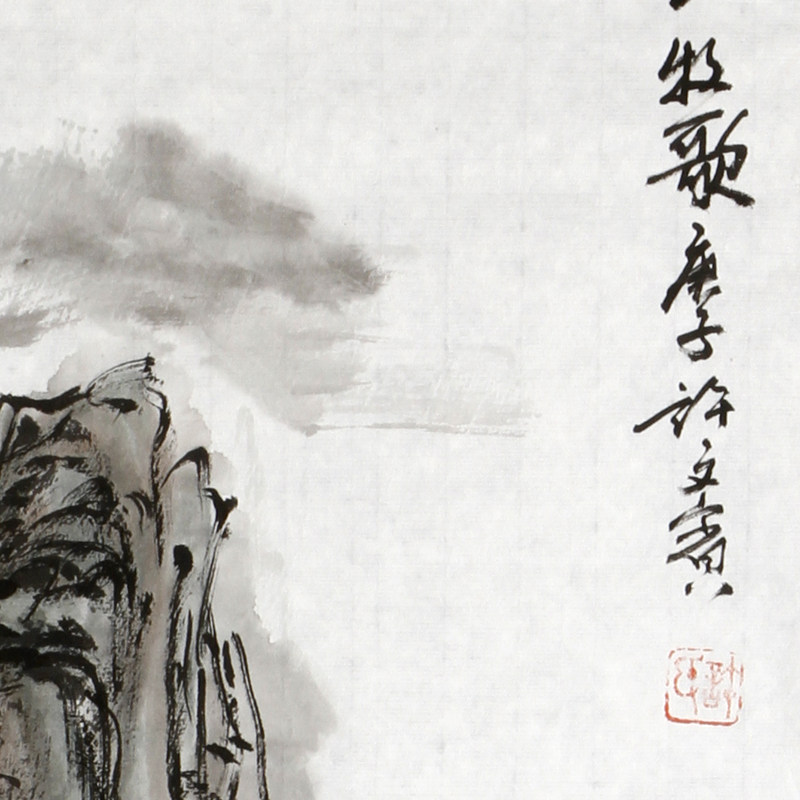 牧歌庚子許文賓